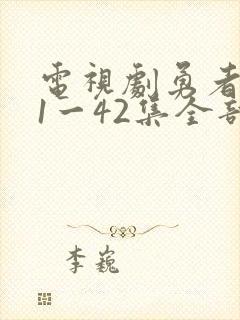 電視劇勇者
1一42集全部
李巍